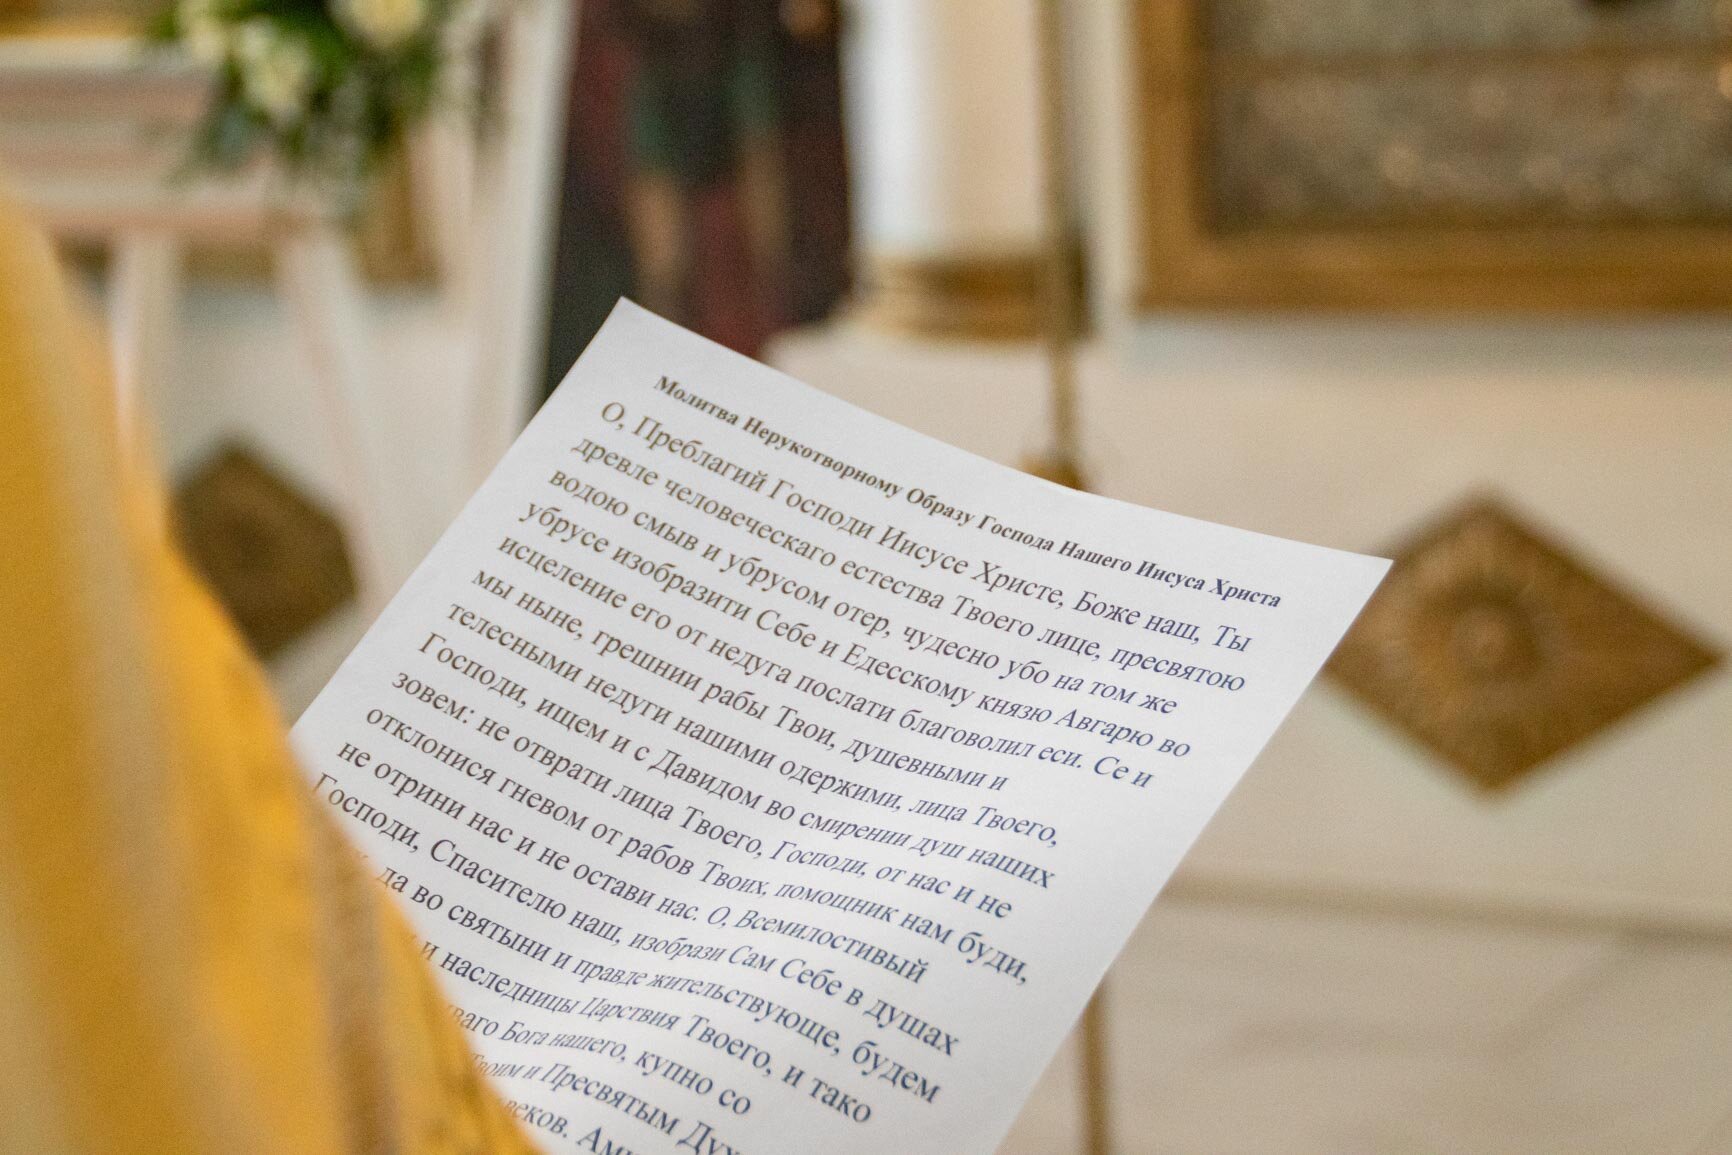 Молитва Нерукотворному Образу Господа Нашего Иисуса Христа
О, Преблагий Господи Иисусе Христе, Боже наш, Ты
древле человеческаго естества Твоего лице, пресвятою
водою смыв и убрусом отер, чудесно убо на том же
убрусе изобразити Себе и Едесскому князю Авгарю во
исцеление его от недуга послати благоволил еси. Се и
мы ныне, грешнии рабы Твои, душевными и
телесными недуги нашими одержими, лица Твоего,
Господи, ищем и с Давидом во смирении душ наших
зовем: не отврати лица Твоего, Господи, от нас и не
отклонися гневом от рабов Твоих, помощник нам буди,
не отрини нас и не остави нас. О, Всемилостивый
Господи, Спасителю наш, изобрази Сам Себе в душах
да во святыни и правде жительствующе, будем
и наследницы Царствия Твоего, и тако
Бога нашего, купно со
Твоим и Пресвятым
веков.